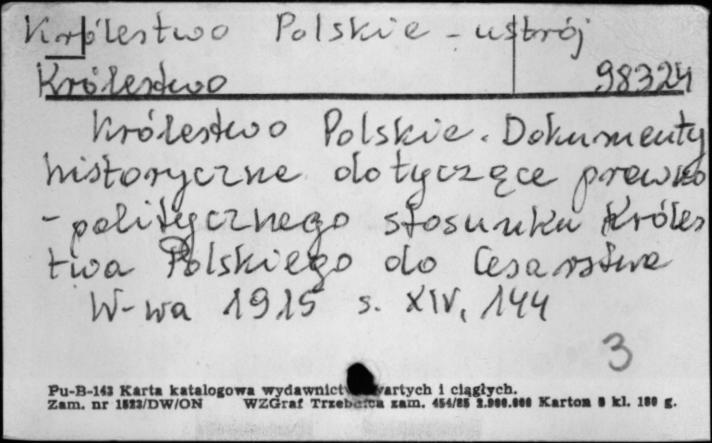 Królestwo Polskie - ustrój
Królestwo 98324
Królestwo Polskie. Dokumenty
historyczne dotyczące prawno
- politycznego stosunku Króles
twa Polskiego do Cesarstwa
W-wa 1915 s. XIV, 144
3
Pu-B-143 Karta katalogowa wydawnictw zwartych i ciągłych.
Zam. nr 1523/DW/ON WZGraf Trzebnica zam. 454/85 2.000.000 Karton 8 kl. 180 g.